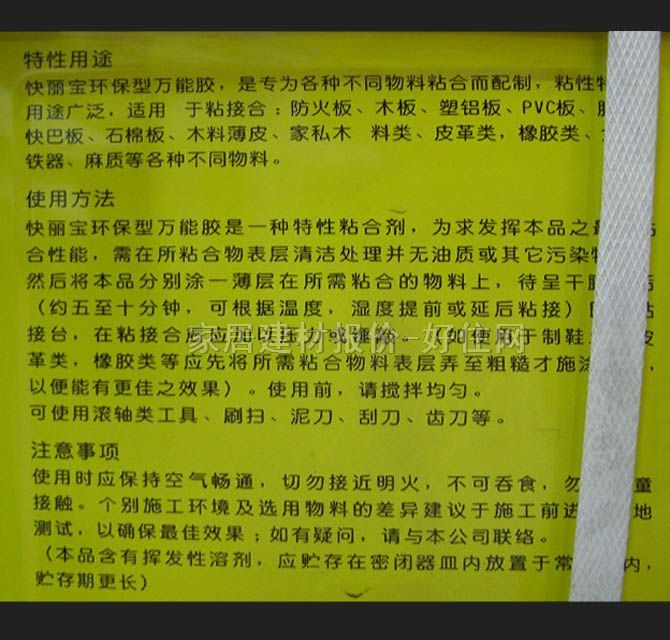 特性用途
快丽宝环保型万能胶，是专为各种不同物料粘合而配制，粘性特
用途广泛，适用 于粘接合：防火板、木板、塑铝板、PVC板、
快巴板、石棉板、木料薄皮、家私木 料类、皮革类，橡胶类、
铁器、麻质等各种不同物料。
使用方法
快丽宝环保型万能胶是一种特性粘合剂，为求发挥本品之最 粘
合性能，需在所粘合物表层清洁处理并无油质或其它污染物
然后将本品分别涂一薄层在所需粘合的物料上，待呈干胶 后
（约五至十分钟，可根据温度，湿度提前或延后粘接） 粘
接台，在粘接合后应加以压力或锤敲。（如使用于制鞋 皮
革类，橡胶类等应先将所需粘合物料表层弄至粗糙才施涂 ，
以便能有更佳之效果）。使用前，请搅拌均匀。
可使用滚轴类工具、刷扫、泥刀、刮刀、齿刀等。
注意事项
使用时应保持空气畅通，切勿接近明火，不可吞食，勿 童
接触。个别施工环境及选用物料的差异建议于施工前进 地
测试，以确保最佳效果；如有疑问，请与本公司联络。
（本品含有挥发性溶剂，应贮存在密闭器皿内放置于常 内，
贮存期更长）
家居建材报价-好住网